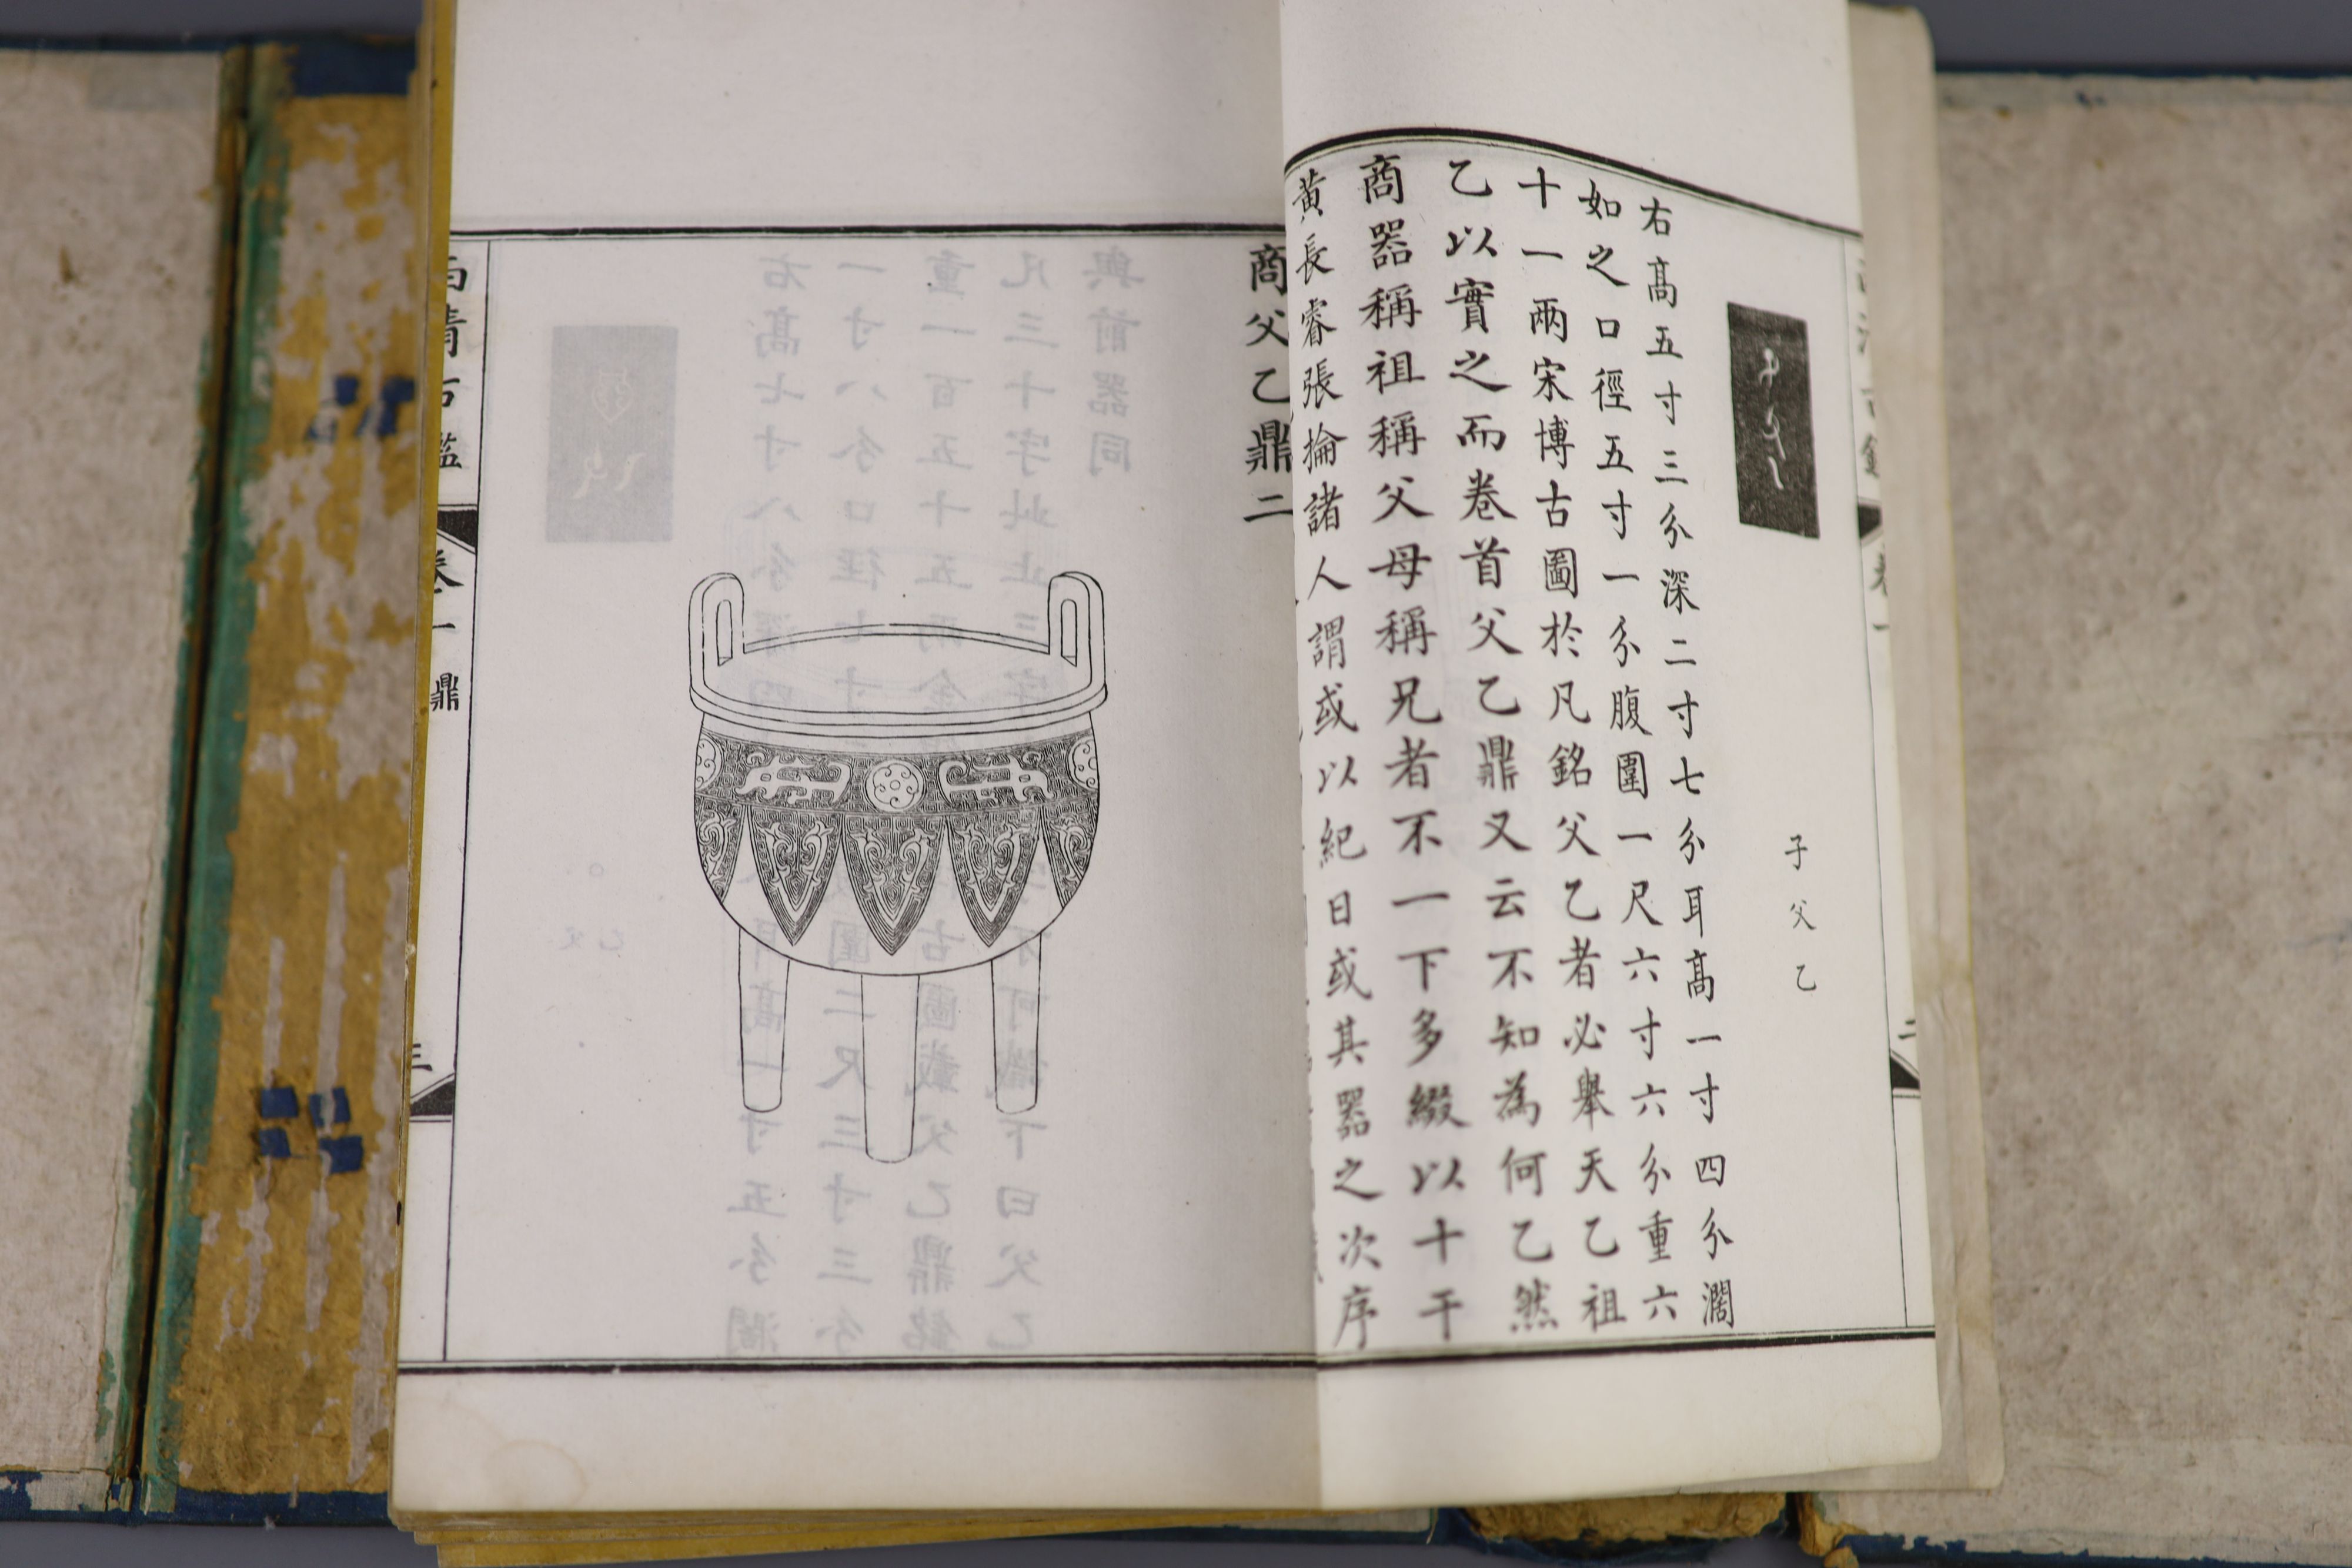 子父乙
右高五寸三分深二寸七分耳高一寸四分濶
如之口徑五寸一分腹圍一尺六寸六分重六
十一兩宋博古圖於凡銘父乙者必舉天乙祖
乙以實之而卷首父乙鼎又云不知為何乙然
商器稱祖稱父母稱兄者不一下多綴以十干
黃長睿張掄諸人謂或以紀日或其器之次序
商父乙鼎二
西清古鑑
卷一
鼎
三